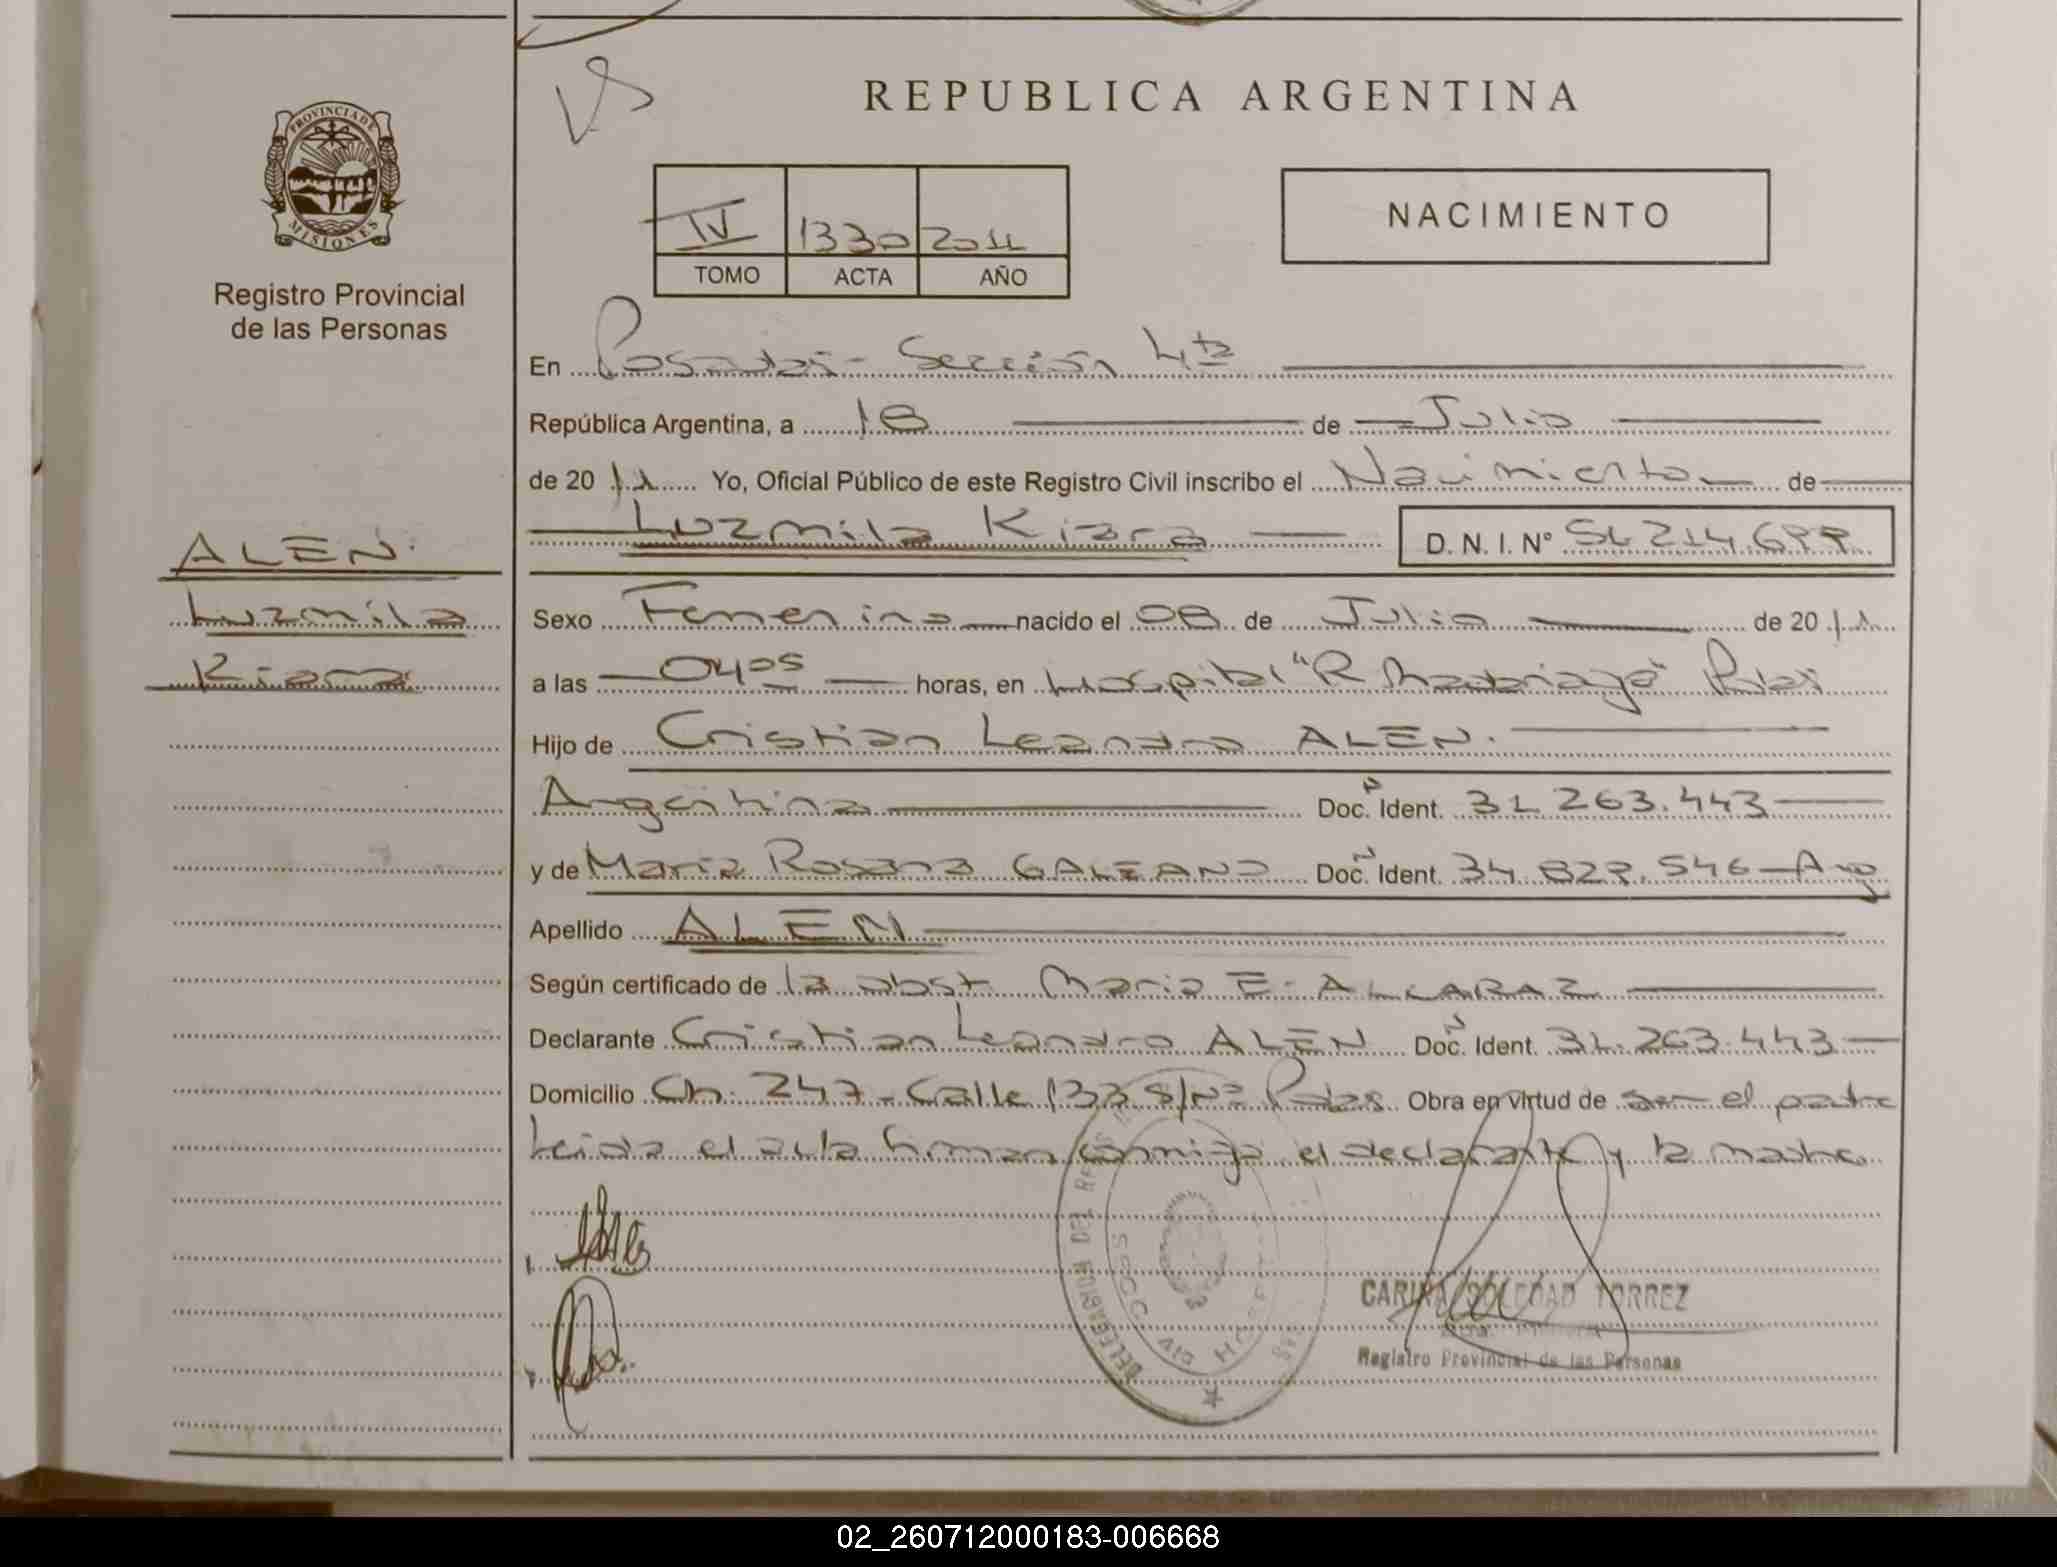 REPUBLICA ARGENTINA
PROVINCIA DE
MISIONES
Registro Provincial
de las Personas
IV 1330 2011
TOMO ACTA AÑO
NACIMIENTO
En Posadas - Sección 4ta
República Argentina, a 18 de Julio
de 2011 Yo, Oficial Público de este Registro Civil inscribo el Nacimiento de
Luzmila Kiara D. N. I. N°
ALEN.
Luzmila
Kiara
Sexo Femenino nacido el 08 de Julio de 2011
a las 04 05 horas, en Hospital "R Madariaga" Pdas
Hijo de Cristian Leandro ALEN.
Argentina Doc. Ident. 31.263.443
y de Maria Rosana GALEANO Doc. Ident. Arg
Apellido ALEN
Según certificado de la obst Maria E. ALCARAZ
Declarante Cristian Leandro ALEN Doc. Ident. 31.263.443
Domicilio Ch. 247 - Calle 133 S/Nº Pdas. Obra en virtud de ser el padre
Leida el acta firman conmigo el declarante y la madre
DELEGACION DEL
SECC. DIV
CARINA SOLEDAD TORREZ
Registro Provincial de las Personas
02_260712000183-006668